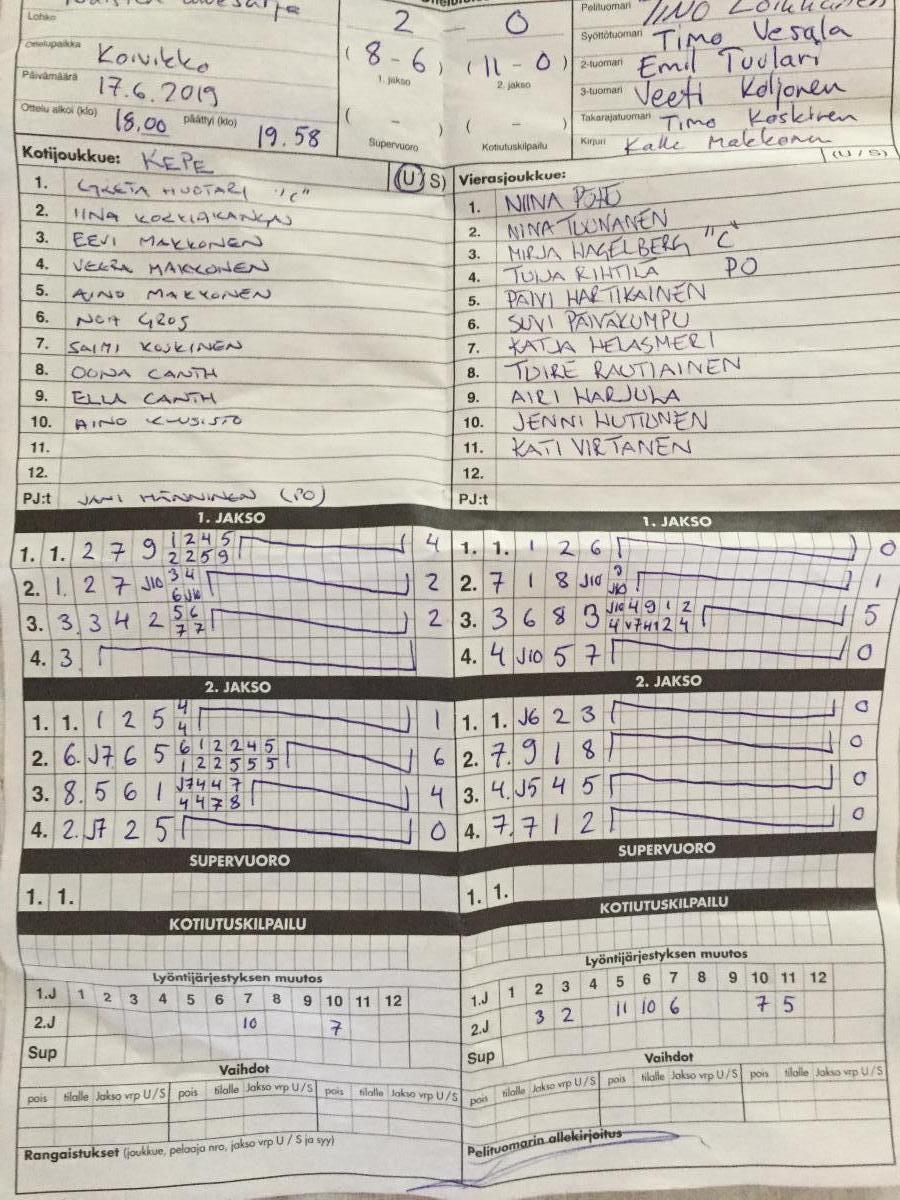 Lohko
2 - 0
Pelituomari
Ottelupaikka Koivikko
(8-6) 1. jakso
(11-0) 2. jakso
Syöttötuomari Timo Vesala
2-tuomari Emil Tuulari
Päivämäärä 17.6.2019
3-tuomari Veeti Koljonen
Ottelu alkoi (klo) 18.00 päättyi (klo) 19.58
( - ) Supervuoro
( - ) Kotiutuskilpailu
Takarajatuomari Timo Koskinen
Kirjuri Kalle Makkonen
Kotijoukkue: KEPE (U/S)
1. GRETA HUOTARI "C"
2. IINA KORKIAKANGAS
3. EEVI MAKKONEN
4. VEERA MAKKONEN
5. AINO MAKKONEN
6. NOA GROS
7. SAIMI KOSKINEN
8. OONA CANTH
9. ELLA CANTH
10. AINO KUUSISTO
11.
12.
PJ:t JANI HÄNNINEN (PO)
Vierasjoukkue: (U/S)
1. NIINA
2. NINA TUUNANEN
3. MIRJA HAGELBERG "C"
4. TUIJA RIHTILÄ PO
5. PÄIVI HARTIKAINEN
6. SUVI PÄIVÄKUMPU
7. KATJA HELASMERI
8. TUIRE RAUTIAINEN
9. AIRI HARJULA
10. JENNI HUTTUNEN
11. KATI VIRTANEN
12.
PJ:t
1. JAKSO
1. 1. 2 7 9 1 2 4 5 4
2 2 5 9
2. 1. 2 7 J10 3 4 2
6 J10
3. 3. 3 4 2 5 6 2
7 7
4. 3.
1. JAKSO
1. 1. 1 2 6 0
2. 7 1 8 J10 3 1
J10
3. 3 6 8 3 J10 4 9 1 2 5
4. 4 J10 5 7 0
2. JAKSO
1. 1. 1 2 5 4 1
4
2. 6. J7 6 5 6 1 2 2 4 5 6
1 2 2 5 5 5
3. 8. 5 6 1 J7 4 4 7 4
4 4 7 8
4. 2. J7 2 5 0
2. JAKSO
1. 1. J6 2 3 0
2. 7. 9 1 8 0
3. 4. J5 4 5 0
4. 7. 7 1 2 0
SUPERVUORO
1. 1.
SUPERVUORO
1. 1.
KOTIUTUSKILPAILU
KOTIUTUSKILPAILU
Lyöntijärjestyksen muutos
1.J 1 2 3 4 5 6 7 8 9 10 11 12
2.J 10 7
Sup
Vaihdot
pois tilalle Jakso vrp U/S pois tilalle Jakso vrp U/S pois tilalle Jakso vrp U/S
Rangaistukset (joukkue, pelaaja nro, jakso vrp U / S ja syy)
Lyöntijärjestyksen muutos
1.J 1 2 3 4 5 6 7 8 9 10 11 12
2.J 3 2 11 10 6 7 5
Sup
Vaihdot
pois tilalle Jakso vrp U/S pois tilalle Jakso vrp U/S pois tilalle Jakso vrp U/S
Pelituomarin allekirjoitus